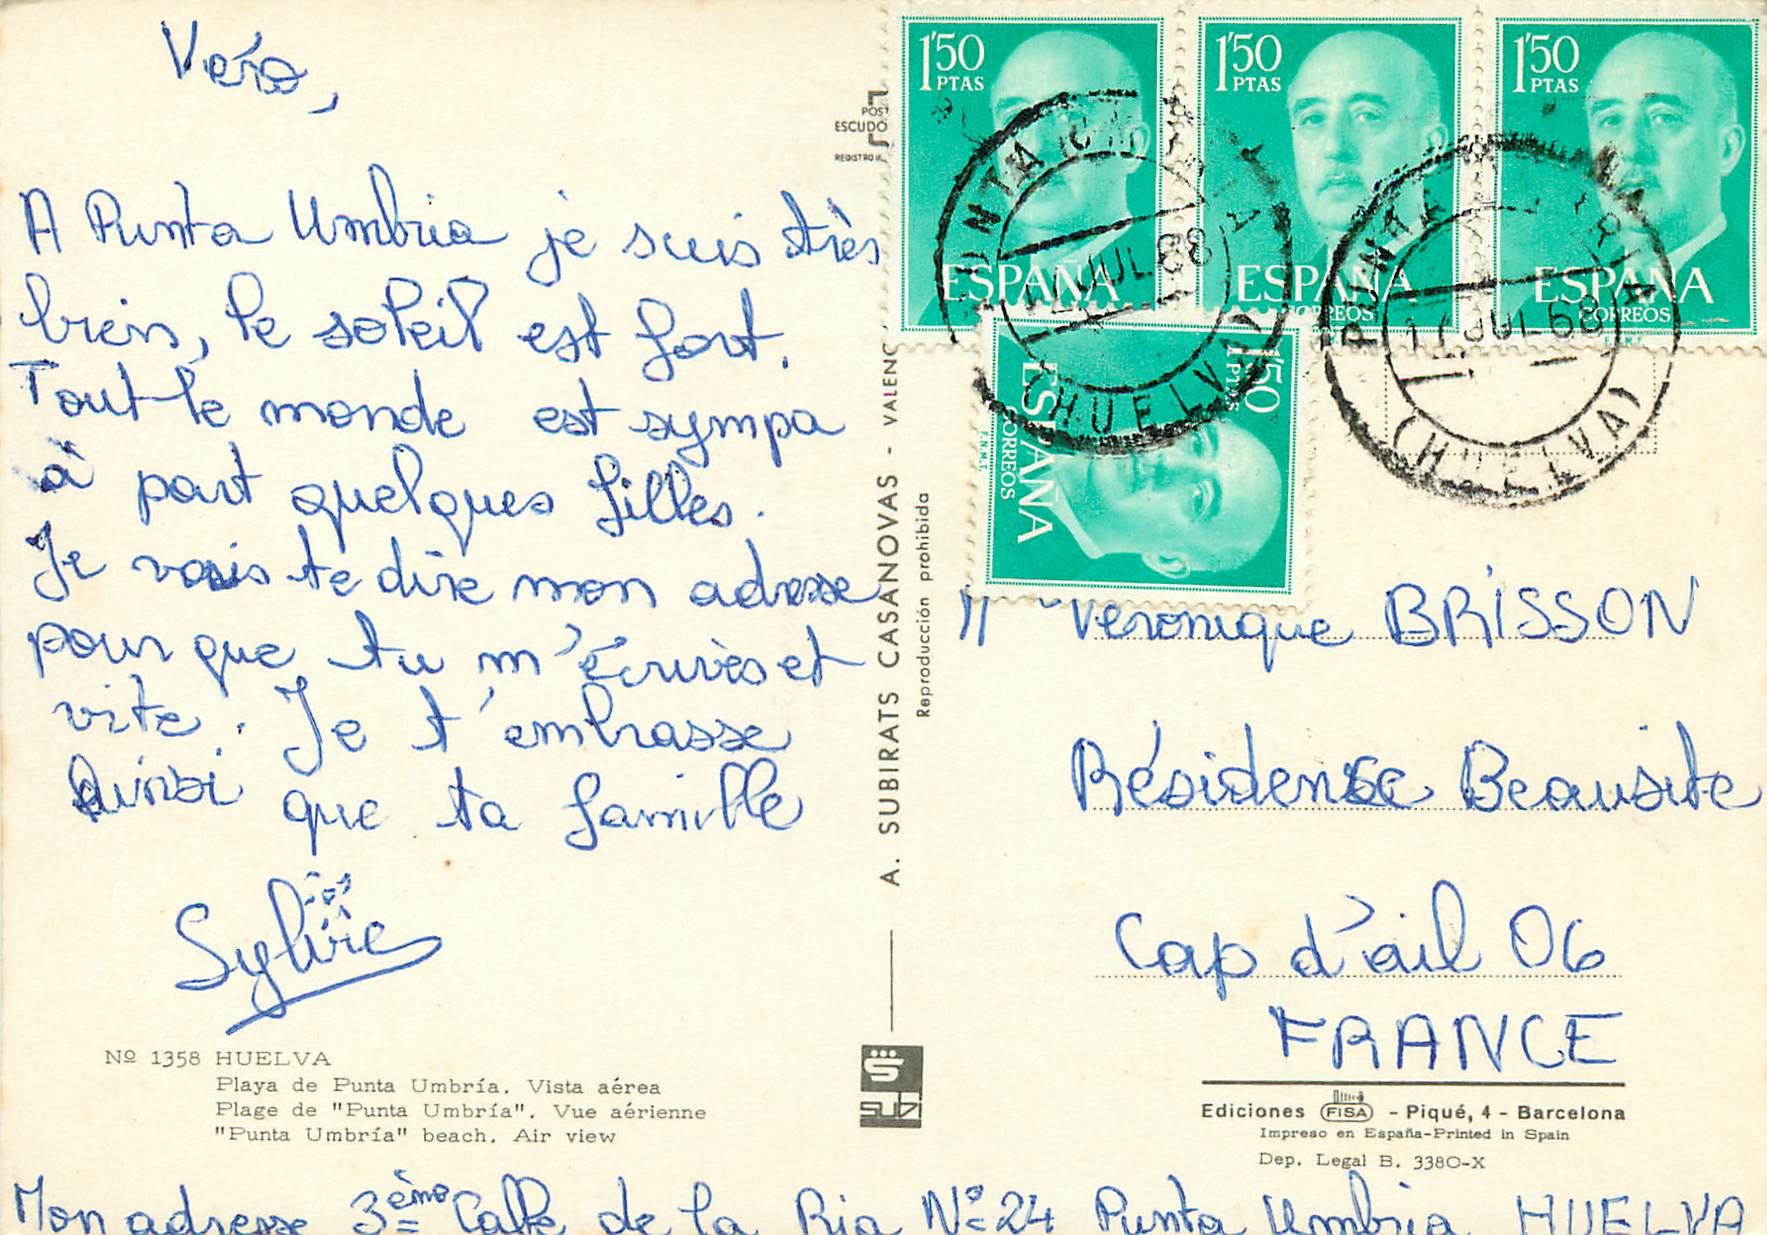 Vero,
A Punta Umbria je suis très
bien, le soleil est fort.
Tout le monde est sympa
à part quelques filles.
Je vais te dire mon adresse
pour que tu m'écrives et
vite. Je t'embrasse
ainsi que ta famille
Sylvie
Nº 1358 HUELVA
Playa de Punta Umbría. Vista aérea
Plage de "Punta Umbría". Vue aérienne
"Punta Umbría" beach. Air view
Mon adresse 3ème Calle de la Ria Nº 24 Punta Umbria HUELVA
POS
ESCUDO
REGISTRO
A. SUBIRATS CASANOVAS - VALENC
Reproducción prohibida
SUBI
1'50 PTAS
ESPAÑA
1'50 PTAS
ESPAÑA
CORREOS
1'50 PTAS
ESPAÑA
CORREOS
1'50 PTAS
ESPAÑA
CORREOS
F.N.M.T.
PUNTA UMBRIA
17 JUL 68
(HUELVA)
PUNTA UMBRIA
17 JUL 68
(HUELVA)
Veronique BRISSON
Résidence Beausite
Cap d'ail 06
FRANCE
Ediciones FISA - Piqué, 4 - Barcelona
Impreso en España-Printed in Spain
Dep. Legal B. 3380-X